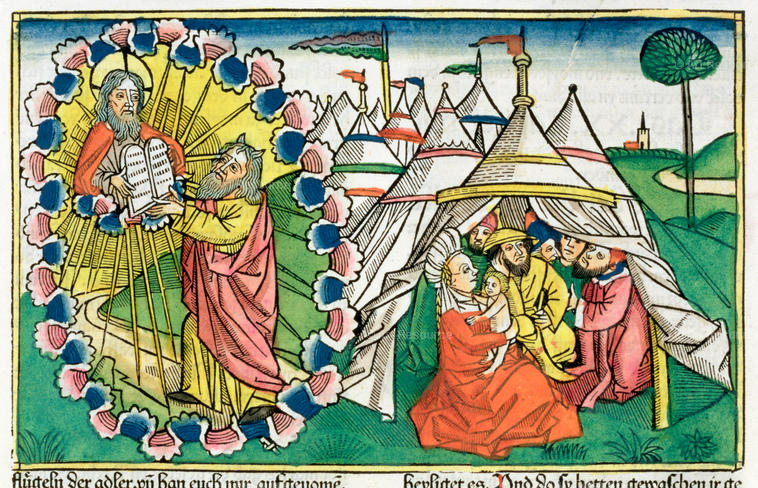 flügeln der adler.vñ han euch mir aufgenomē.
heyliget es. Und do sy hetten gewaschen ir ge